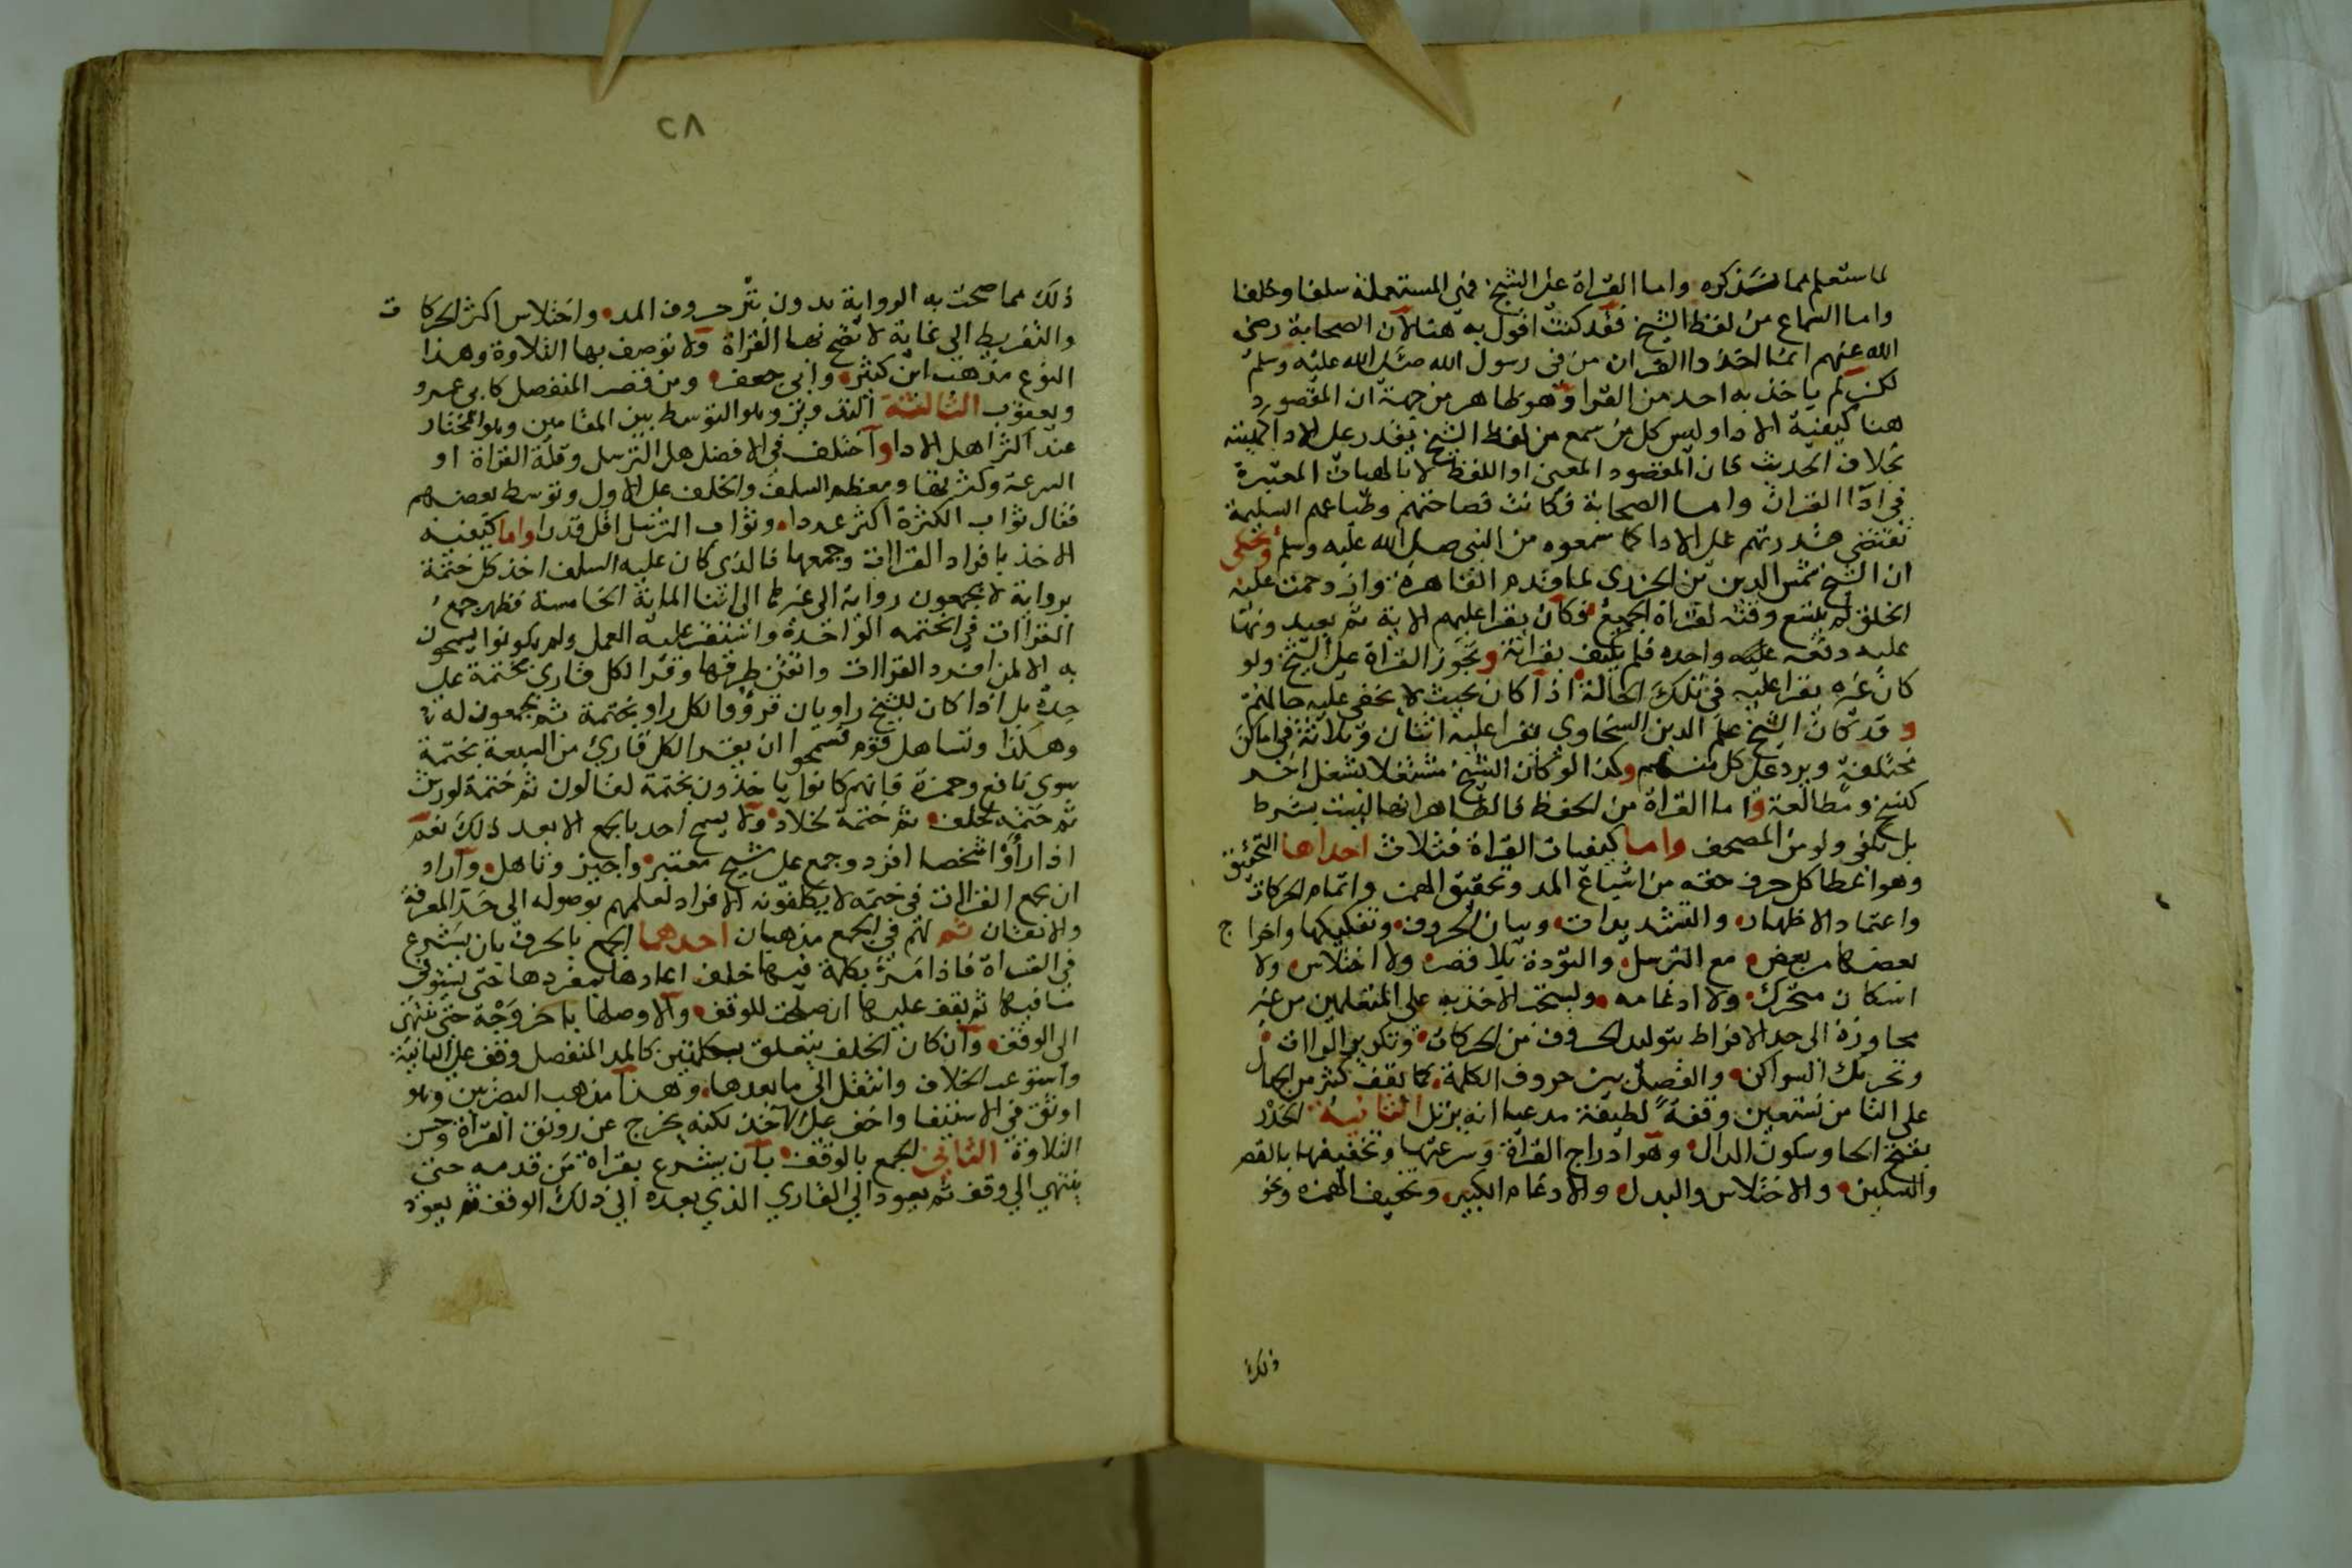 لما ستعلم مما سنذكره واما القراة على الشيخ فهى المستعملة سلفا وخلفا
واما السماع من لفظ الشيخ فقد كنت اقول به هنا لان الصحابة رضى
الله عنهم انما اخذوا القران من فى رسول الله صلى الله عليه وسلم
لكن لم ياخذ به احد من القرا وهو ظاهر من جهة ان المقصود
هنا كيفية الادا وليس كل من سمع من لفظ الشيخ يقدر على الادا كهيئته
بخلاف الحديث فان المقصود المعنى او اللفظ لا بالهيات المعتبرة
فى ادا القران واما الصحابة فكانت فصاحتهم وطباعهم السليمة
تقتضى قدرتهم على الادا كما سمعوه من النبى صلى الله عليه وسلم وتحكى
ان الشيخ شمس الدين بن الجزرى لما قدم القاهرة وازدحمت عليه
الخلق لم يتسع وقته لقراة الجميع فكان يقرا عليهم الاية ثم يعيدونها
عليه دفعة واحده فلم يكتف بقراته وتجوز القراة على الشيخ ولو
كان غيره يقرا عليه فى تلك الحالة اذا كان بحيث لا يخفى عليه حالهم
وقد كان الشيخ علم الدين السخاوى يقرا عليه اثنان وثلاثة فى اماكن
مختلفة ويرد على كل منهم وكذا لو كان الشيخ مشتغلا بشغل اخر
كنسخ ومطالعة واما القراة من الحفظ فالظاهر انها ليست بشرط
بل يكفى ولو من المصحف واما كيفيات القراة فثلاث احداها التحقيق
وهو اعطا كل حرف حقه من اشباع المد وتحقيق الهمز واتمام الحركات
واعتماد الاظهار والتشديدات وبيان الحروف وتفكيكها واخراج
بعضها من بعض مع الترسل والتؤدة بلا قصر ولا اختلاس ولا
اسكان متحرك ولا ادغامه ويستحب الاخذ به على المتعلمين من غير
مجاوزة الى حد الافراط بتوليد الحروف من الحركات وتكرير الراات
وتحريك السواكن والفصل بين حروف الكلمة كما يقف كثير من الجهال
على التا من نستعين وقفة لطيفة مدعيا انه يرتل الثانية الحدر
بفتح الحا وسكون الدال وهو ادراج القراة وسرعتها وتخفيفها بالقصر
والتسكين والاختلاس والبدل والادغام الكبير وتخفيف الهمزه ونحو
ذلك
٢٨
ذلك مما صحت به الرواية بدون بتر حروف المد واختلاس اكثر الحركات
والتفريط الى غاية لا تصح بها القراة ولا توصف بها التلاوة وهذا
النوع مذهب ابن كثير وابى جعفر ومن قصر المنفصل كابى عمرو
ويعقوب الثالثة التدوير وهو التوسط بين المقامين وهو المختار
عند اكثر اهل الادا واختلف فى الافضل هل الترسل وقلة القراة او
السرعة وكثرتها ومعظم السلف والخلف على الاول وتوسط بعضهم
فقال ثواب الكثرة اكثر عددا وثواب الترتيل اقل قدرا واما كيفية
الاخذ بافراد القراات وجمعها فالذى كان عليه السلف اخذ كل ختمة
برواية لا يجمعون رواية الى غيرها الى اثنا الماية الخامسة فظهر جمع
القراات فى الختمه الواحدة واستقر عليه العمل ولم يكونوا يسمحون
به الا لمن افرد القراات واتقن طرقها وقرا لكل قارى بختمة على
حدة بل اذا كان للشيخ راويان قرؤوا لكل راو بختمة ثم يجمعون له
وهكذا وتساهل قوم فسمحوا ان يقرا لكل قارئ من السبعة بختمة
سوى نافع وحمزة فانهم كانوا ياخذون بختمة لقالون ثم ختمة لورش
ثم ختمه لخلف ثم ختمة لخلاد ولا يسمح احد بالجمع الا بعد ذلك نعم
اذا راوا شخصا افرد وجمع على شيخ معتبر واجيز وتاهل واراد
ان يجمع القراات فى ختمة لا يكلفونه الافراد لعلمهم بوصوله الى حد المعرفة
والاتقان ثم لهم فى الجمع مذهبان احدهما الجمع بالحرف بان يشرع
فى القراة فاذا مر بكلمة فيها خلف اعادها بمفردها حتى يستوفى
ما فيها ثم يقف عليها ان صلحت للوقف والا وصلها باخر وجه حتى ينتهى
الى الوقف وان كان الخلف يتعلق بكلمتين كالمد المنفصل وقف على الثانية
واستوعب الخلاف وانتقل الى ما بعدها وهذا مذهب المصريين وهو
اوثق فى الاستيفا واخف على الاخذ لكنه يخرج عن رونق القراة وحسن
التلاوة الثانى الجمع بالوقف بان يشرع بقراة من قدمه حتى
ينتهي الي وقف ثم يعود الي القاري الذي بعده الى ذلك الوقف ثم يعود